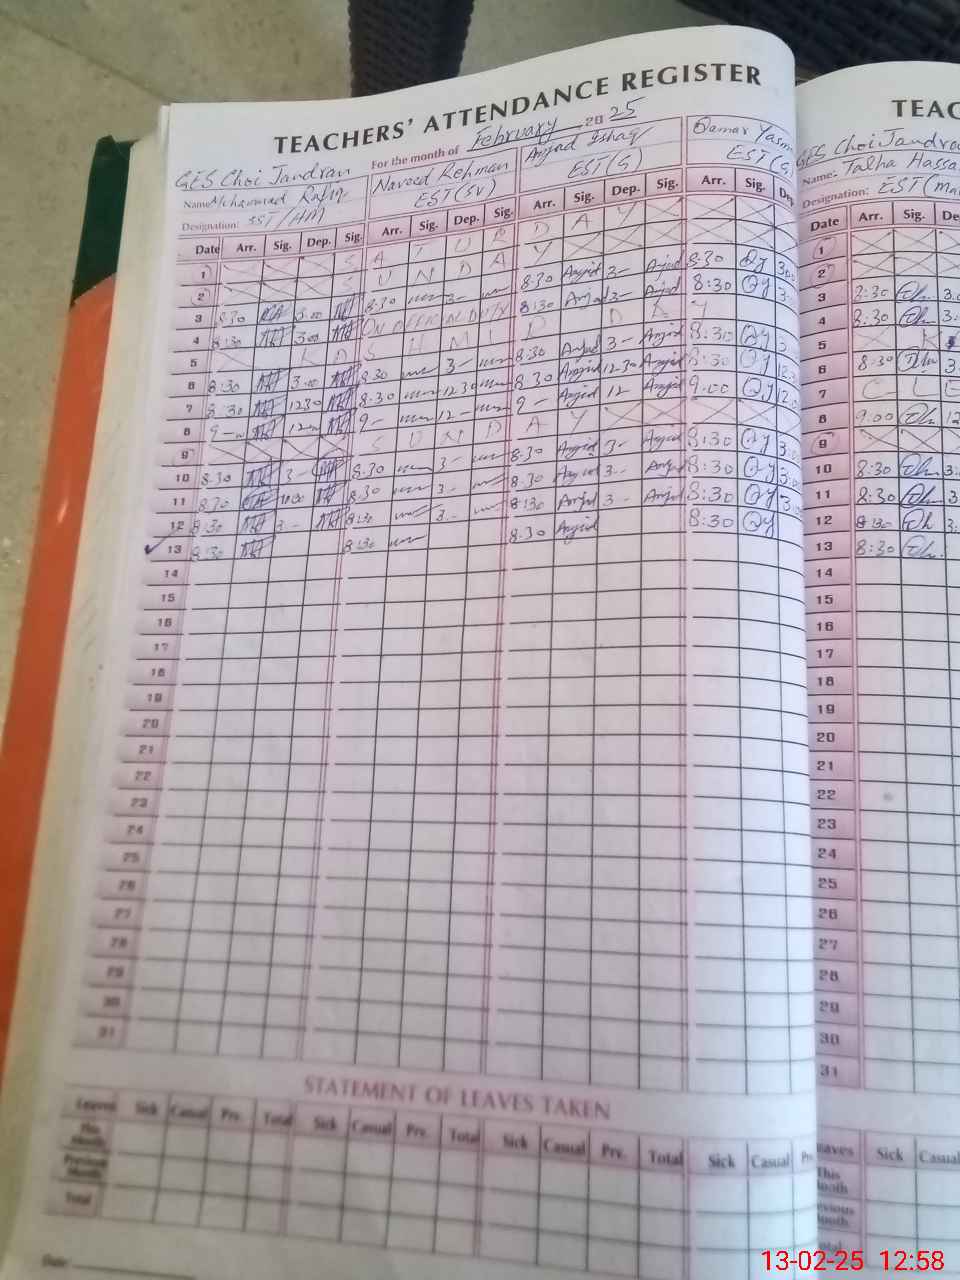 TEACHERS' ATTENDANCE REGISTER
For the month of February 2025
GES Choi Jandran
Name Mohammad Rafiq
Designation: SST/HM
Naveed Rehman
EST (SV)
Amjad Ishaq
EST (G)
Qamar Yasm
EST (G)
Date Arr. Sig. Dep. Sig. Arr. Sig. Dep. Sig. Arr. Sig. Dep. Sig. Arr. Sig. Dep
1 S A T U R D A Y
2 S U N D A Y
3 8:30 3:00 8:30 3- 8:30 Amjad 3- Amjad 8:30 Qy 3:0
4 8:30 3:00 ON OFFICIAL DUTY 8:30 Amjad 3- Amjad 8:30 Qy 3:
5 K A S H M I R D A Y
6 8:30 3:00 8:30 3- 8:30 Amjad 3- Amjad 8:30 Qy 3
7 8:30 12:30 8:30 12:30 8:30 Amjad 12:30 Amjad 8:30 Qy 12:
8 9- 12- 9- 12- 9- Amjad 12- Amjad 9:00 Qy 12:0
9 S U N D A Y
10 8:30 3- 8:30 3- 8:30 Amjad 3- Amjad 8:30 Qy 3:0
11 8:30 8:30 3- 8:30 Amjad 3- Amjad 8:30 Qy 3:0
12 8:30 3- 8:30 3- 8:30 Amjad 3- Amjad 8:30 Qy 3:0
13 8:30 8:30 8:30 Amjad 8:30 Qy
14
15
16
17
18
19
20
21
22
23
24
25
26
27
28
29
30
31
STATEMENT OF LEAVES TAKEN
Leaves Sick Casual Prv. Total Sick Casual Prv. Total Sick Casual Prv. Total Sick Casual Prv
This Month
Previous Month
Total
Date:
TEAC
GES Choi Jandra
Name: Talha Hassa
Designation: EST (ma
Date Arr. Sig. De
1
2
3 8:30 Th. 3:0
4 8:30 Th. 3:
5 K
6 8:30 Th 3.
7 C L E
8 9:00 Th 12
9
10 8:30 Th. 3:
11 8:30 Th. 3:
12 8:30 Th 3:
13 8:30 Th.
14
15
16
17
18
19
20
21
22
23
24
25
26
27
28
29
30
31
eaves Sick Casual
This
onth
evious
onth
otal
13-02-25 12:58